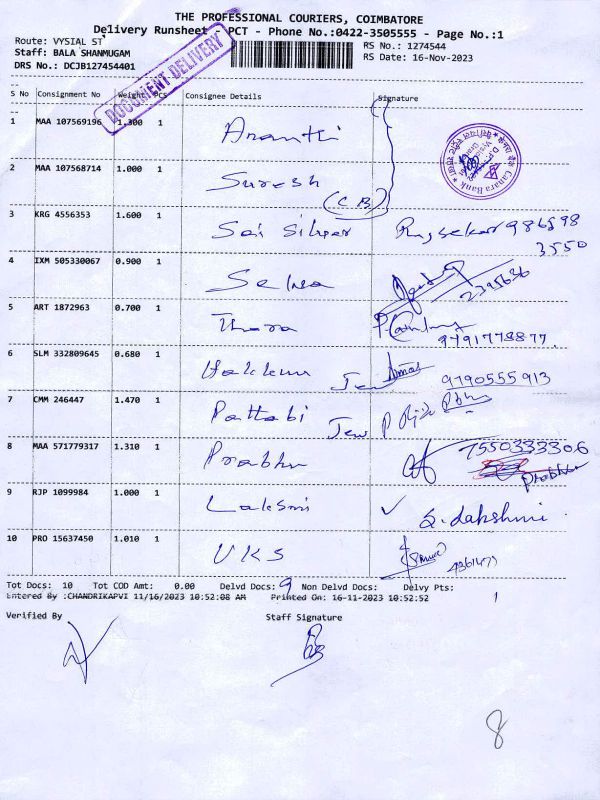 THE PROFESSIONAL COURIERS, COIMBATORE
Delivery Runsheet PCT - Phone No.:0422-3505555 - Page No.:1
Route: VYSIAL ST
RS No.: 1274544
Staff: BALA SHANMUGAM
RS Date: 16-Nov-2023
DRS No.: DCJB127454401
DOCUMENT DELIVERY
S No Consignment No Weight Pcs Consignee Details Signature
1 MAA 107569196 1.300 1 Ananthi
Canara Bank
2 MAA 107568714 1.000 1 Suresh
(C.B)
3 KRG 4556353 1.600 1 Sai Silver
3550
4 IXM 505330067 0.900 1 Selva 2395636
5 ART 1872963 0.700 1 Thara
9791778877.
6 SLM 332809645 0.680 1 Jew
9790555913
7 CMM 246447 1.470 1 Pattabi Jew
8 MAA 571779317 1.310 1 Prabhu 7550333306
Prabhu
9 RJP 1099984 1.000 1 Laksmi ✓ S. Lakshmi.
10 PRO 15637450 1.010 1 UKS
Tot Docs: 10 Tot COD Amt: 0.00 Delvd Docs: 9 Non Delvd Docs: Delvy Pts:
1
Entered By :CHANDRIKAPVI 11/16/2023 10:52:08 AM Printed On: 16-11-2023 10:52:52
Verified By Staff Signature
8